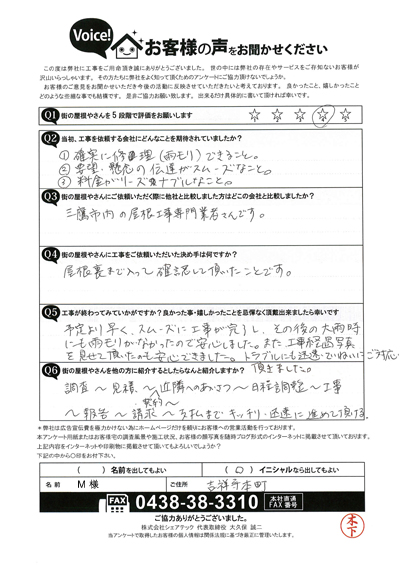 Voice!
お客様の声をお聞かせください
この度は弊社に工事をご用命頂き誠にありがとうございました。世の中には弊社の存在やサービスをご存知ないお客様が
沢山いらっしゃいます。その方たちに弊社をよく知って頂くためのアンケートにご協力頂けないでしょうか。
お客様のご意見をお聞かせいただき今後の活動に反映させていただきたいと考えております。良かったこと、嬉しかったこと
どのような些細な事でも結構です。是非ご協力お願い致します。出来るだけ具体的に書いて頂ければ幸いです。
Q1 街の屋根やさんを5段階で評価をお願いします ☆ ☆ ☆ ☆ ☆
Q2 当初、工事を依頼する会社にどんなことを期待されていましたか?
① 確実に修理(雨モリ)できること。
② 要望・懸念の伝達がスムーズなこと。
③ 料金がリーズナブルなこと。
Q3 街の屋根やさんにご依頼いただく際に他社と比較しました方はどこの会社と比較しましたか?
三鷹市内の屋根工事専門業者さんです。
Q4 街の屋根やさんに工事をご依頼いただいた決め手は何ですか?
屋根裏まで入って確認して頂いたことです。
Q5 工事が終わってみていかがですか?良かった事・嬉しかったことを忌憚なく頂戴出来ましたら幸いです
予定より早く、スムーズに工事が完了し、その後の大雨時
にも雨モリがなかったので安心しました。また、工事経過写真
を見せて頂いたのも安心できました。トラブルにも迅速・ていねいにご対応
頂きました。
Q6 街の屋根やさんを他の方に紹介するとしたらなんと紹介しますか?
調査〜見積〜契約〜近隣へのあいさつ〜日程調整〜工事
〜報告〜請求〜支払まで キッチリ・迅速に進めて頂ける。
*弊社は広告宣伝費を極力かけない為にホームページだけを頼りにお客様への営業活動を行っております。
本アンケート用紙またはお客様宅の調査風景や施工状況、お客様の顔写真を随時ブログ形式のインターネットに掲載させて頂いております。
上記内容をインターネットや印刷物に掲載させて頂いてもよろしいでしょうか?
下記の中から○印をお付下さい。
( ) 名前を出してもよい ( ○ ) イニシャルなら出してもよい
名前 M 様 ご住所 吉祥寺本町
FAX 0438-38-3310 本社直通 FAX番号
ご協力ありがとうございました。
株式会社シェアテック 代表取締役 大久保 誠二
当アンケートで取得したお客様の個人情報は関係法規に基づき厳正に管理いたします。
木下